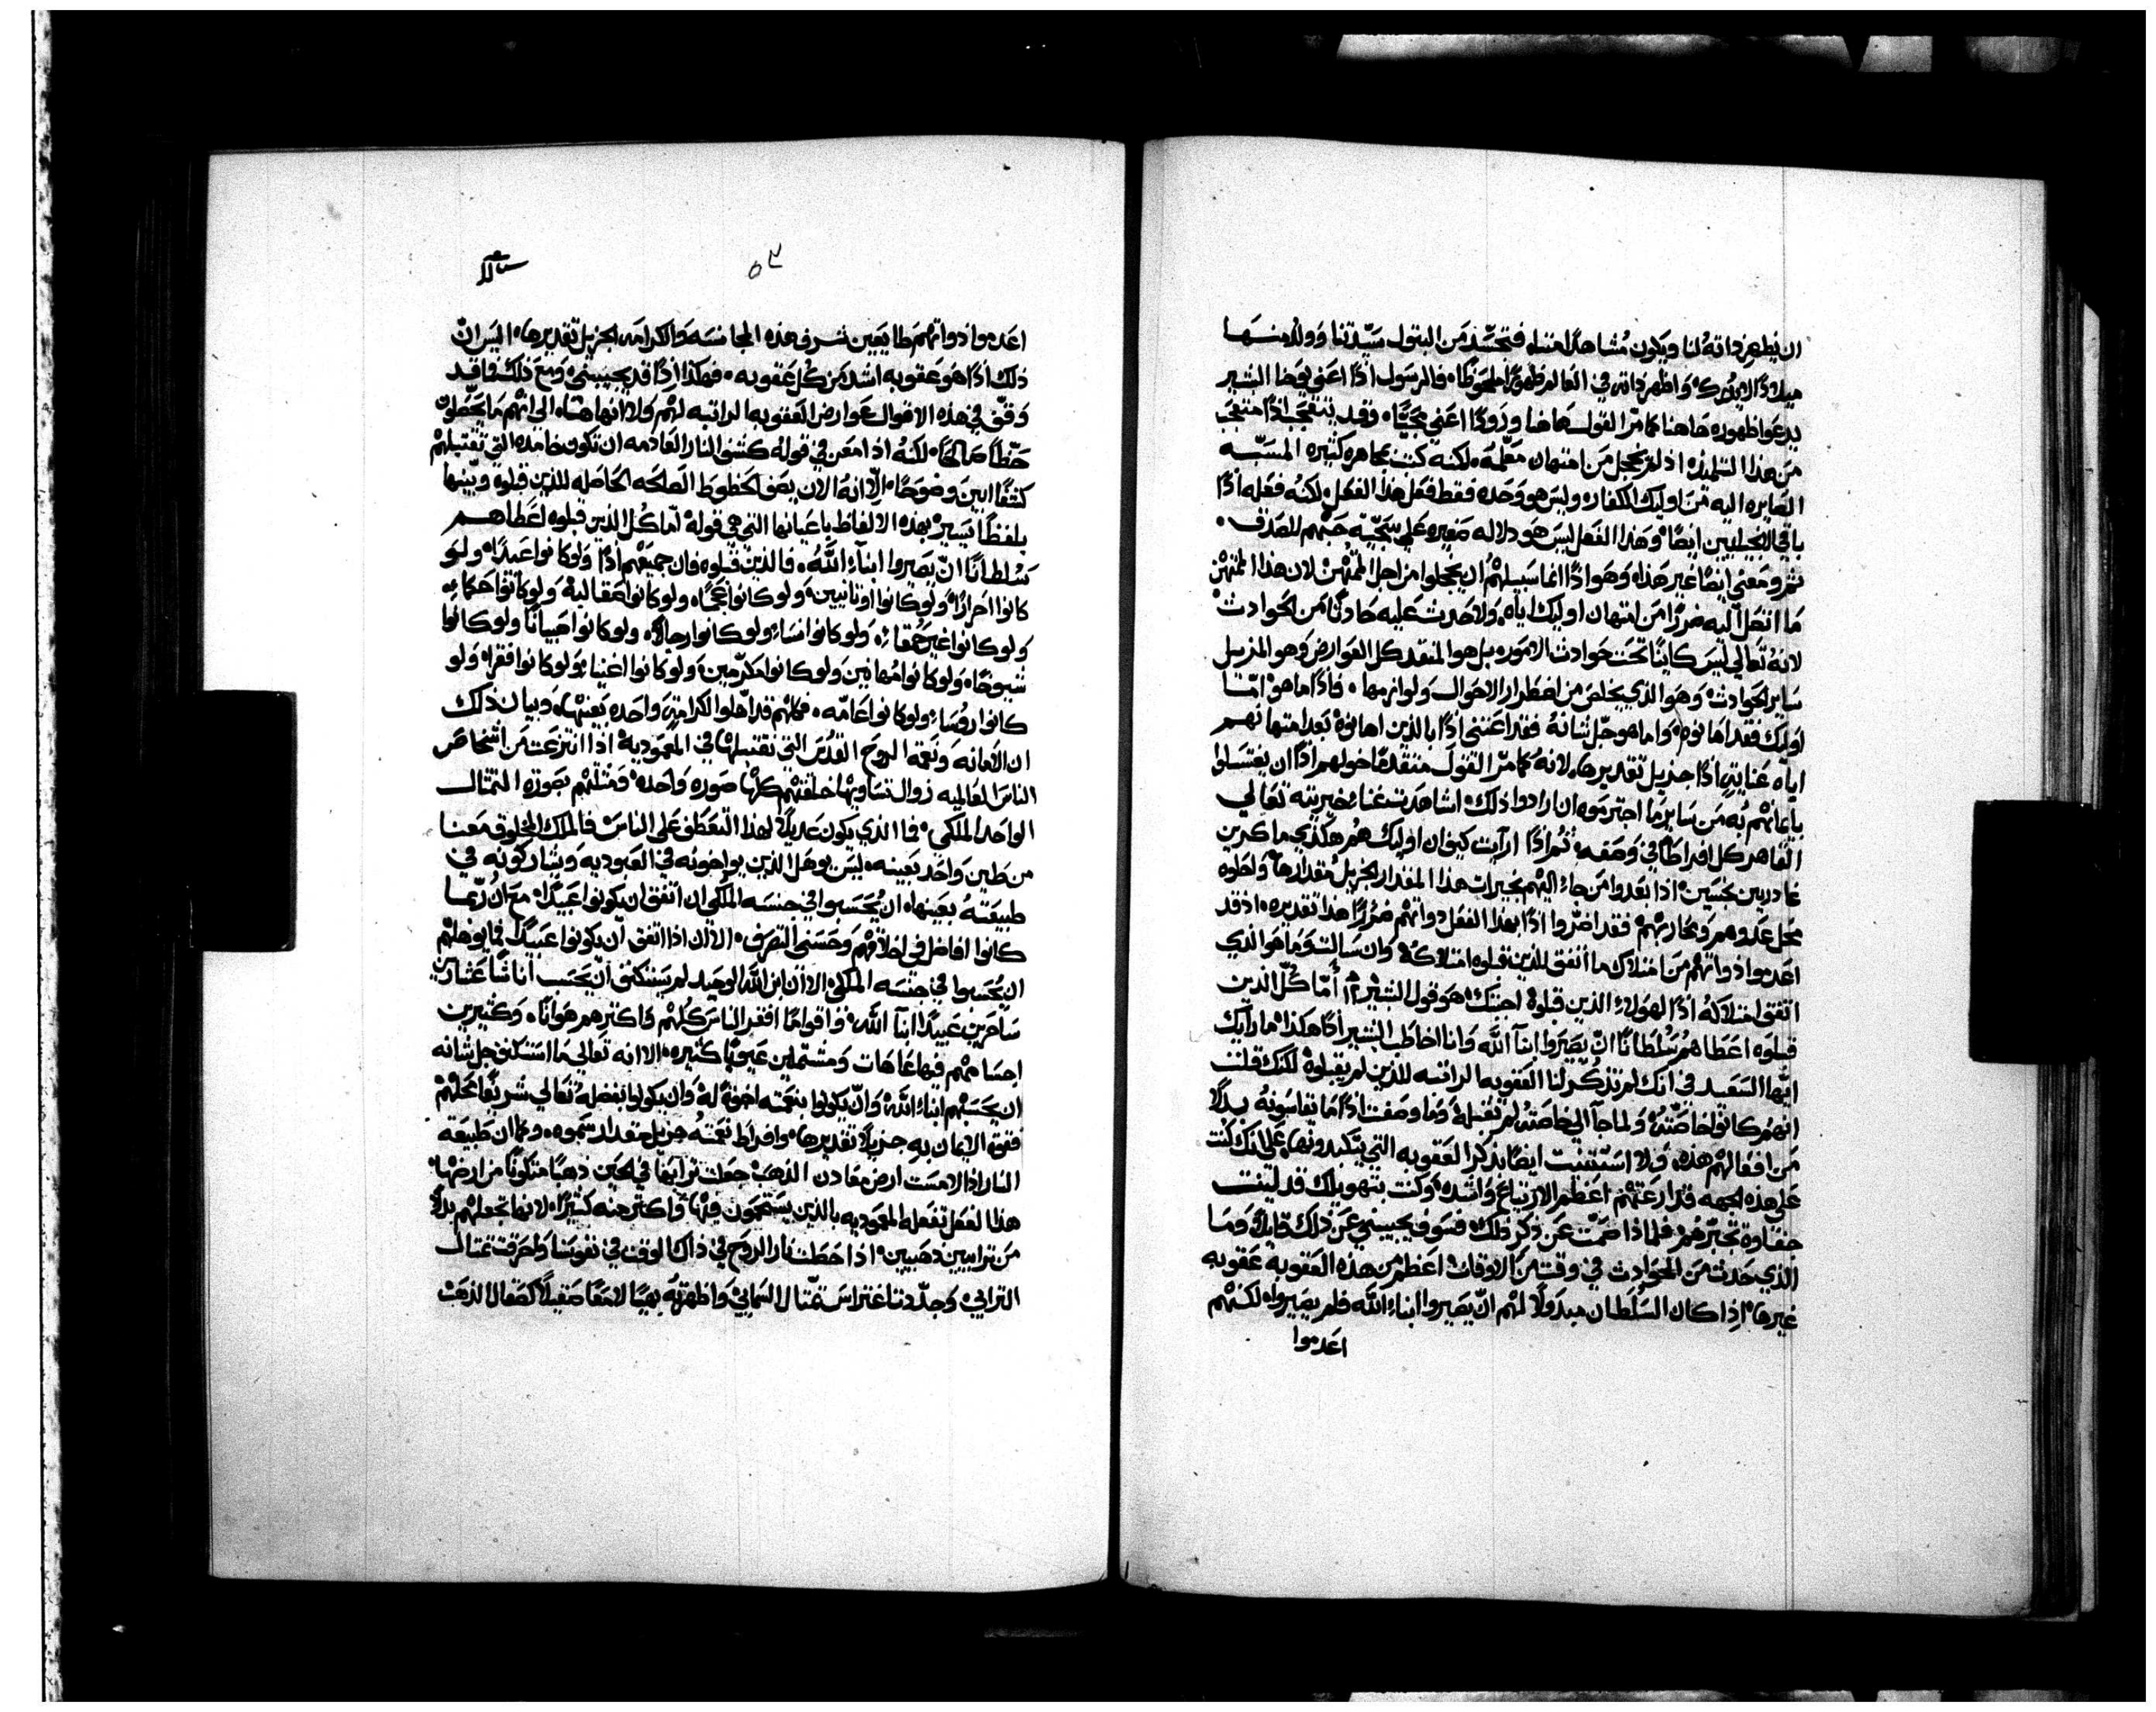 ان يظهر ذاته لنا ويكون مُشاهدًا منا فتجسّد من البتول سيّدتنا وولد منها
ميلادًا لا يدرك واظهر ذاته في العالم ظهورًا ملحوظًا فالرسول اذًا اعني يوحنا البشير
يدعوا ظهوره هاهنا كما مرّ القول هاهنا وروده اعني مجيّا وقد يتعجب اذًا متعجب
من هذا التلميذ اذ لم يخجل من امتهان معلّمه لكنه كتب بمجاهره كثيره المسبّه
الصايره اليه من اوليك الكفار وليس هو وحده فقط فعل هذا الفعل لكنه فعله اذًا
باقي الانجيليين ايضًا وهذا الفعل ليس هو دلاله صغيره علي سجيّة حبّهم للصدق
ثم ومعني ايضًا غير هذا وهو اذًا انما سبيلهم ان يخجلوا من اجل الممتهن لان هذا الممتهن
ما اتصل اليه ضررًا من امتهان اوليك اياه ولا حدث عليه حادثًا من الحوادث
لانه تعالي ليس كاينًا تحت حوادث الامور بل هو المنقد كل العوارض وهو المزيل
ساير الحوادث وهو الذي يخلص من اضطرار الاحوال ولوازمها فاذًا ما هو امّا
اوليك فقد اهانوه واما هو جلّ شانه فقد اعتني اذًا بالذين اهانوه بعد امتهانهم
اياه عنايةً اذًا جزيل تقديرها لانه كما مرّ القول متقدمًا خولهم اذًا ان يغتسلوا
بايمانهم به من ساير ما اجترموه ان ارادوا ذلك اشاهدت غناء خيريته تعالي
القاهر كل افراط في وصفه ثم اذًا ارايت كيف ان اوليك هم هكذي ماكرين
غادرين خسّين اذا بعدوا من جاء اليهم بخيرات هذا المقدار الجزيل مقدارها واحلوه
محل عدوهم ومحاربهم فقد اضرّوا اذًا بهذا الفعل دواتهم ضررًا هذا تقديره اذ قد
اعدموا ذواتهم من امتلاك ما اتفق للذين قبلوه امتلاكه وان سالت وما هو الذي
اتفق امتلاكه اذًا لهولاء الذين قبلوه اجبتك هو قول البشير امّا كلّ الذين
قبلوه اعطاهم سُلطانًا انّ يصيروا ابنا الله وانا اخاطب البشير اذًا هكذا ما رايك
ايها السعيد في انك لم تذكر لنا العقوبه الراتبه للذين لم يقبلوه لكنك قلت
انهم كانوا خاصّته ولما جا الي خاصته لم تقبله وما وصفت اذًا ما يقاسونه بدلًا
من افعالهم هذه ولا استثنيت ايضًا بذكر العقوبه التي يتكبدونها علي انك كنت
علي هذه الجهه قد ارعتهم اعظم الارتياع واشده وكنت بتهويلك قد لينت
جفاوة تجبّرهم فلماذا صمت عن ذكر ذلك فسوف يجيبني عن ذلك قايلًا وما
الذي حدث من الحوادث في وقت من الاوقات اعظم من هذه العقوبة عقوبه
غيرها اذا كان السُلطان مبدولًا لهم انّ يصيروا ابناء الله فلم يصيروا لكنهم
اعدموا
٥٢
اعدموا ذواتهم طايعين شرف هذه المجانسه والكرامه الجزيل تقديرها اليس انّ
ذلك اذًا هو عقوبه اشد من كل عقوبه فهكذا اذًا قد يجيبني ومع ذلك فاقد
وقف في هذه الاقوال عوارض العقوبه الراتبه لهم ولا انهاها الي انهم ما يحظون
حظًا صالحًا لكنه اذا معن في قوله كشف النار العادمه ان تكون خامده التي تقتبلهم
كشفًا ابين وضوحًا الّا انه الان يصف الحظوظ الصالحه الحاصله للذين قبلوه ويبينها
بلفظًا يسير بهذه الالفاظ باعيانها التي هي قوله امّا كل الذين قبلوه اعطاهم
سُلطانًا انّ يصيروا ابناء اللّه فالذين قبلوه فان جميعهم اذًا ولو كانوا عبيدًا ولو
كانوا احرارًا ولو كانوا اونانيين ولو كانوا عجمًا ولو كانوا صقالبة ولو كانوا حكماء
ولو كانوا غير حكماء ولو كانوا نساء ولو كانوا رجالًا ولو كانوا صبيانًا ولو كانوا
شيوخًا ولو كانوا مُهانين ولو كانوا مكرّمين ولو كانوا اغنياء ولو كانوا فقرا ولو
كانوا روساء ولو كانوا عامّه فكلهم قد اهّلوا لكرامةٍ واحده بعينها وبيان ذلك
ان الامانه ونعمة الروح القدس التي نقتبلها في المعموديه اذا انتزعت من اشخاص
الناس العالميه زوال تساويها خلقتهم كلها صوره واحده ومثلتهم بصورة التمثال
الواحد الملكي فما الذي يكون عديلًا لهذا التعطف علي الناس فالملك المخلوق معنا
من طين واحد بعينه ليس يوهل الذين يواخونه في العبوديه ويشاركونه في
طبيعته بعينها ان يُحسبوا في جنسه الملكي ان اتفق ان يكونوا عبيدًا مع ان ربما
كانوا افاضل في اخلاقهم وحسني التصرف الا ان اذا اتفق ان يكونوا عبيدًا فما يوهلهم
ان يُحسبوا في جنسه الملكي الا ان ابن الله الوحيد لم يستنكف ان يحسب اناسًا عشارين
ساحرين عبيدًا ابنا الله واقوامًا افقر الناس كلهم واكثرهم هوانًا وكثيرين
اجسامهم فيها عاهات ومشتملين عيوبًا كثيره الا انه تعالي ما استنكف جل شانه
ان يحسبهم ابناء الله وانّ يكونوا بنعمته اخوةً له وان يكونوا بفضله تعالي شريفًا محلهم
فقوة الايمان به جزيلًا تقديرها وافراط نعمته جزيل مقدار سموه وكما ان طبيعة
النار اذا لامست ارض معادن الذهب جعلت ترابها في الحين ذهبًا متكونًا من ارضها
هذا الفعل تفعله المعموديه بالذين يستحمون فيها واكثر منه كثيرًا لانها تجعلهم بدلًا
من ترابيين ذهبيين اذا حطت نار الروح في ذاك الوقت في نفوسنا واحرقت تمثال
الترابي وجدّدتنا غتراس تمثال السماني واظهرته بهيًا لامعًا صقيلًا كصقال الذهب